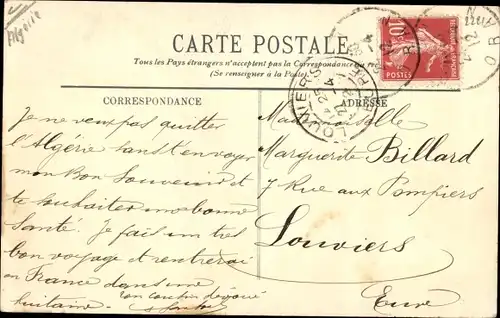 Algérie
CARTE POSTALE
Tous les Pays étrangers n'acceptent pas la Correspondance au
(Se renseigner à la Poste).
CORRESPONDANCE
ADRESSE
10
POSTES
LOUVIERS
EURE
ORAN
Je ne veux pas quitter
l'Algérie sans t'envoyer
mon bon Souvenir et
te souhaiter une bonne
Santé. Je fais un très
bon voyage et rentrerai
en France dans une
huitaine.
ton cousin dévoué
Mademoiselle
Marguerite Billard
7 Rue aux Pompiers
Louviers
Eure